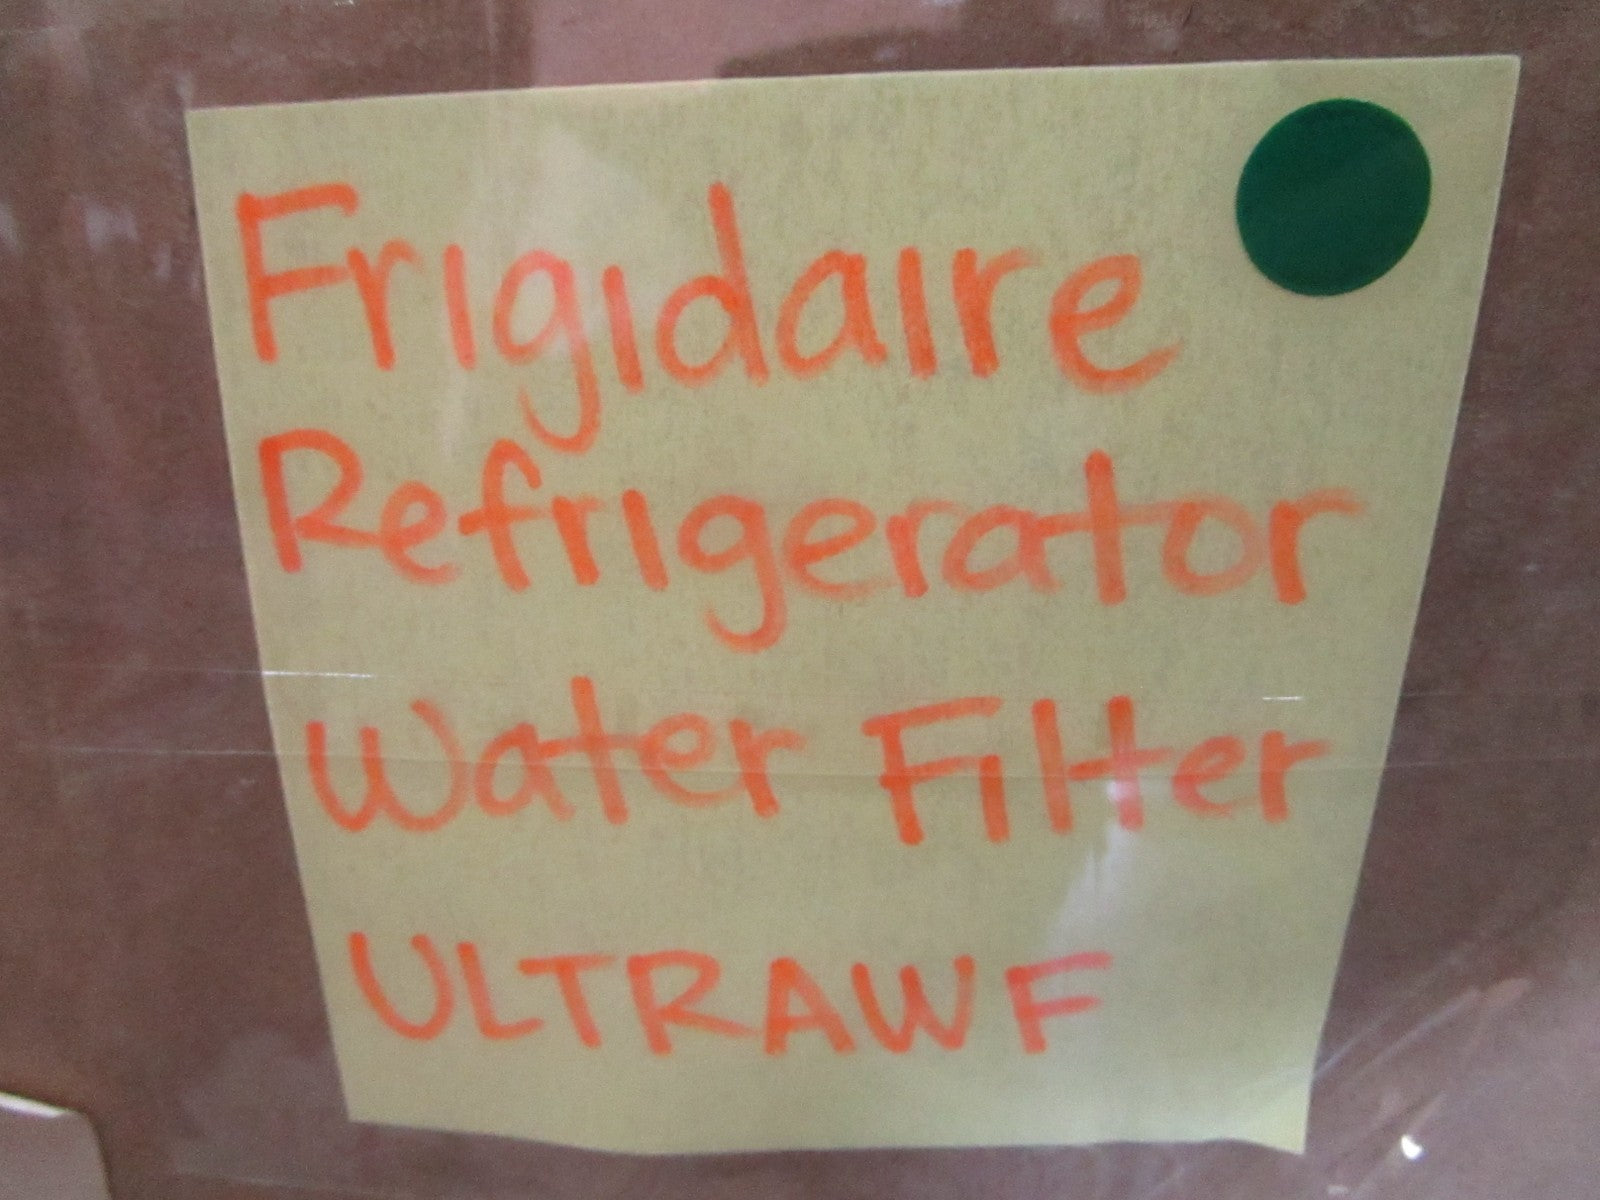 Frigidaire
Refrigerator
Water Filter
ULTRAWF